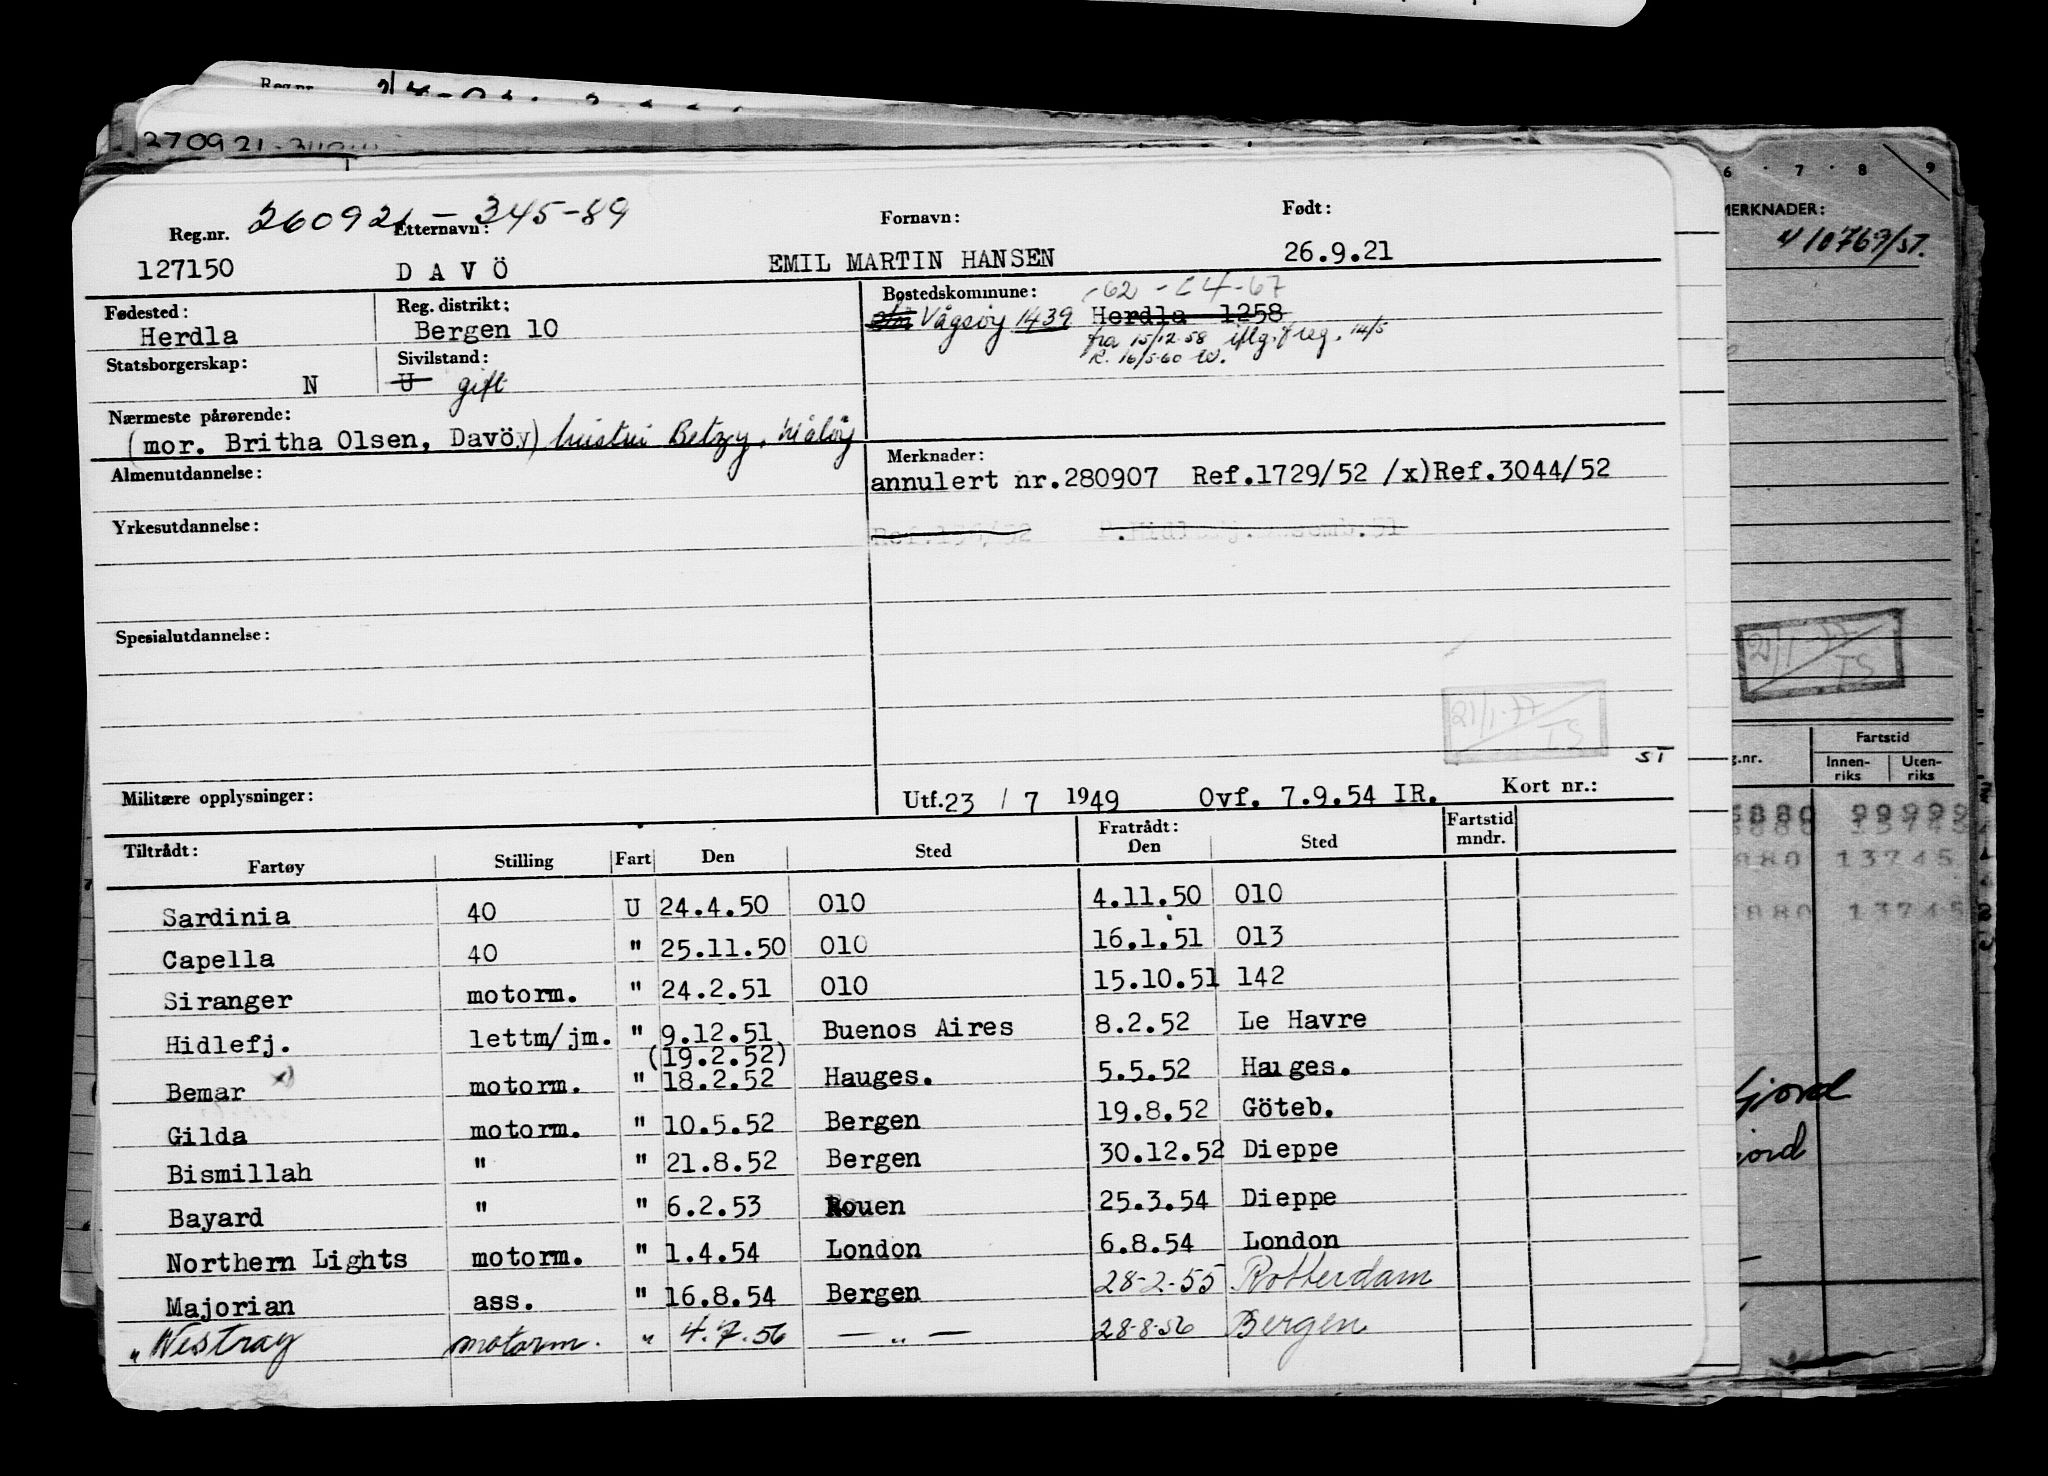 Reg.nr.
270921
Reg.nr. 260921-345-89 Etternavn: Fornavn: Født:
127150 DAVÖ EMIL MARTIN HANSEN 26.9.21
Fødested: Reg. distrikt: Bostedskommune: -67
Herdla Bergen 10 Vågsøy 1439 Herdla 1258
fra 15/12.58 iflg. freg. 14/5
R. 16/5-60 W.
Statsborgerskap: Sivilstand:
N U gift
Nærmeste pårørende:
(mor. Britha Olsen, Davöy) hustru Betzy, Måløy
Almenutdannelse: Merknader:
annulert nr.280907 Ref.1729/52 /x)Ref.3044/52
Yrkesutdannelse:
Spesialutdannelse:
21/1-77
TS
ST
Militære opplysninger: Utf.23 / 7 1949 Ovf. 7.9.54 IR. Kort nr.:
Tiltrådt: Fratrådt: Fartstid
Fartøy Stilling Fart Den Sted Den Sted mndr.
Sardinia 40 U 24.4.50 010 4.11.50 010
Capella 40 " 25.11.50 010 16.1.51 013
Siranger motorm. " 24.2.51 010 15.10.51 142
Hidlefj. lettm/jm. " 9.12.51 Buenos Aires 8.2.52 Le Havre
(19.2.52)
Bemar x) motorm. " 18.2.52 Hauges. 5.5.52 Hauges.
Gilda motorm. " 10.5.52 Bergen 19.8.52 Göteb.
Bismillah " " 21.8.52 Bergen 30.12.52 Dieppe
Bayard " " 6.2.53 Rouen 25.3.54 Dieppe
Northern Lights motorm. " 1.4.54 London 6.8.54 London
Majorian ass. " 16.8.54 Bergen 28-2-55 Rotterdam
"Westray motorm. " 4.7.56 — " — 28-8-56 Bergen
6 · 7 · 8 9
MERKNADER:
410769/ST.
21/1-77
TS
g.nr. Fartstid
Innen-riks Uten-riks
8880 99999
880 13745
880 13745
fjord
jord